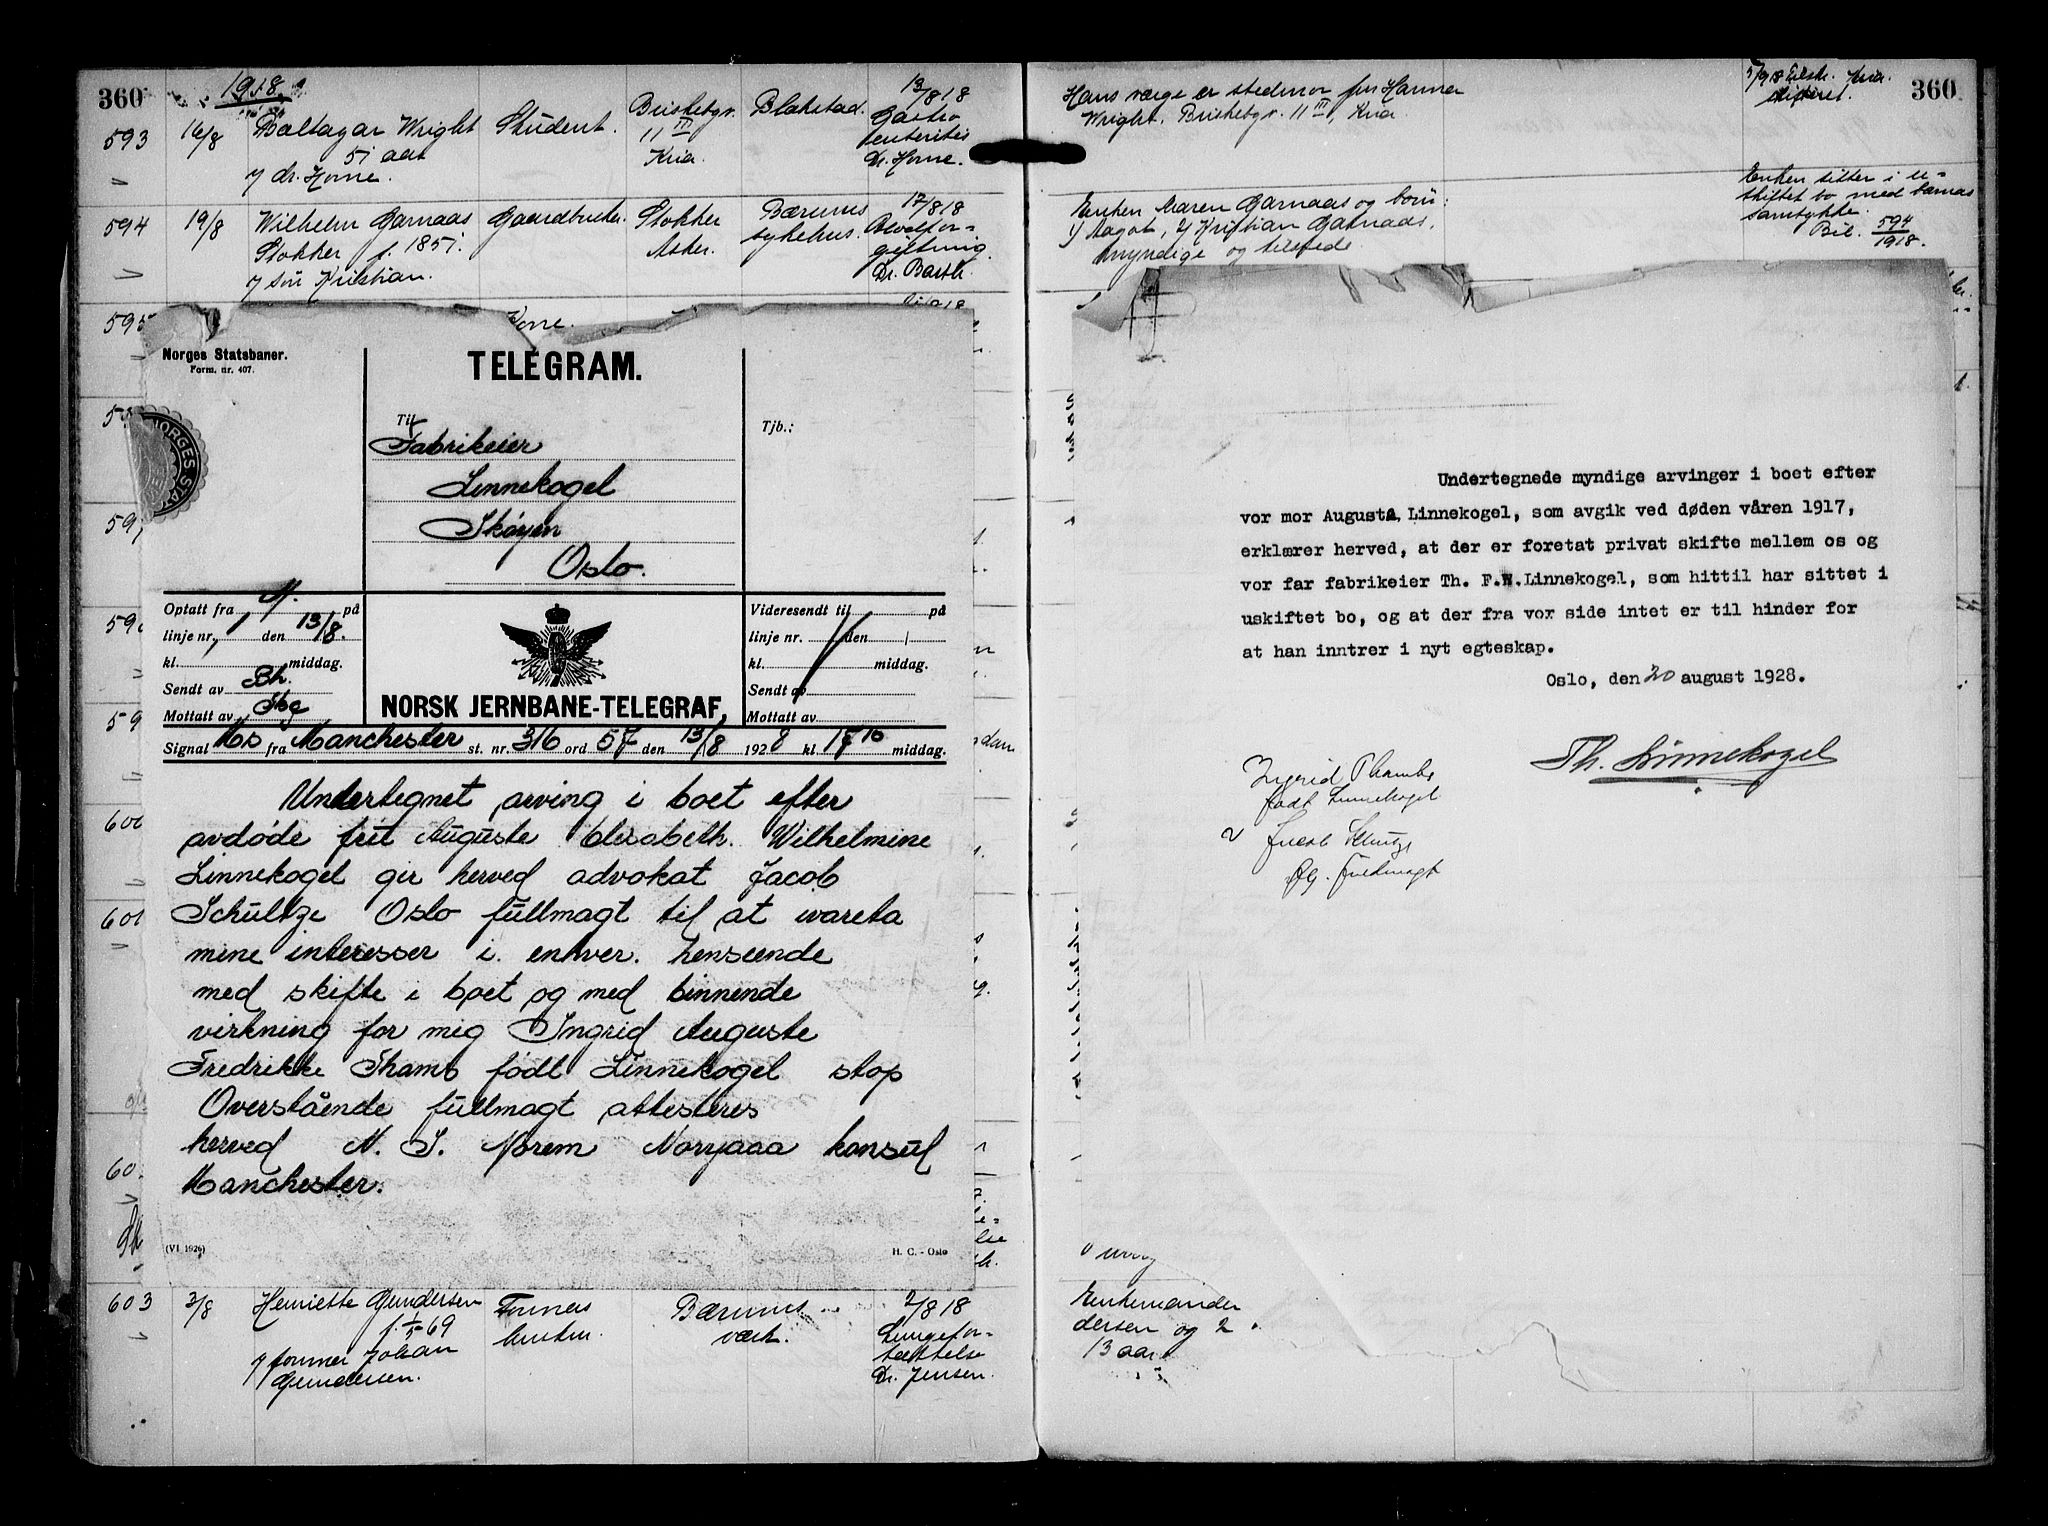 360
1918
593 16/8 Baltazar Wright Student. Briskebyv. Blakstad. 13/8 18
51 aar 11 III Gastro
Kria. enteritis
v dr. Horne. Dr. Horne.
594 19/8 Wilhelm Garnaas Gaardbruker. Stokker Bærums 17/8 18
Stokker f. 1851 Asker. sykehus.
v søn Kristian. Dr. Barth.
595
Norges Statsbaner.
Form. nr. 407.
TELEGRAM.
Til
Fabrikeier
Linnekogel
Skøyen
Oslo.
Tjb.:
NORGES STA
Optatt fra M. på
linje nr. 1 den 13/8.
kl. middag.
Sendt av Bh.
Mottatt av
NORSK JERNBANE-TELEGRAF,
Videresendt til på
linje nr. den
kl. middag.
Sendt av
Mottatt av
Signal Ms fra Manchester st. nr. 316 ord 57 den 13/8 1928 kl 17 10 middag.
Undertegnet arving i boet efter
avdøde frú Auguste Elisabeth. Wilhelmine
Linnekogel gir herved advokat Jacob
Schultze Oslo fullmagt til at vareta
mine interesser i. enhver. henseende
med skifte i boet og med binnende
virkning for mig Ingrid Auguste
Fredrikke Thams født Linnekogel stop
Overstående fullmagt attesteres
herved N. S. Norem Norgaaa konsul
Manchester.
(VI 1926)
H. C. - Oslo
600
601
603 3/8 Henriette Gundersen Formers Bærums 2/8 18
f. 1/5 69 hustru. værk. Lungefor-
v former Johan tættelse
Gundersen. Dr. Jensen.
360
Hans værge er stedmor fru Hanna
Wright, Briskebyv. 11 III, Kria.
Enken Maren Garnaas og børn:
1) Aagot, 2) Kristian Garnaas,
myndige og tilstede.
Enken sitter i u-
skiftet bo med barnas
samtykke.
Bil. 594/1918.
Undertegnede myndige arvinger i boet efter
vor mor Augusta Linnekogel, som avgik ved døden våren 1917,
erklærer herved, at der er foretat privat skifte mellem os og
vor far fabrikeier Th. F.W. Linnekogel, som hittil har sittet i
uskiftet bo, og at der fra vor side intet er til hinder for
at han inntrer i nyt egteskap.
Oslo, den 20 august 1928.
Th. Linnekogel
Ingrid Thams
født Linnekogel
v Jacob Schultze
flg. fuldmagt
Enkemanden
dersen og 2
13 aar.